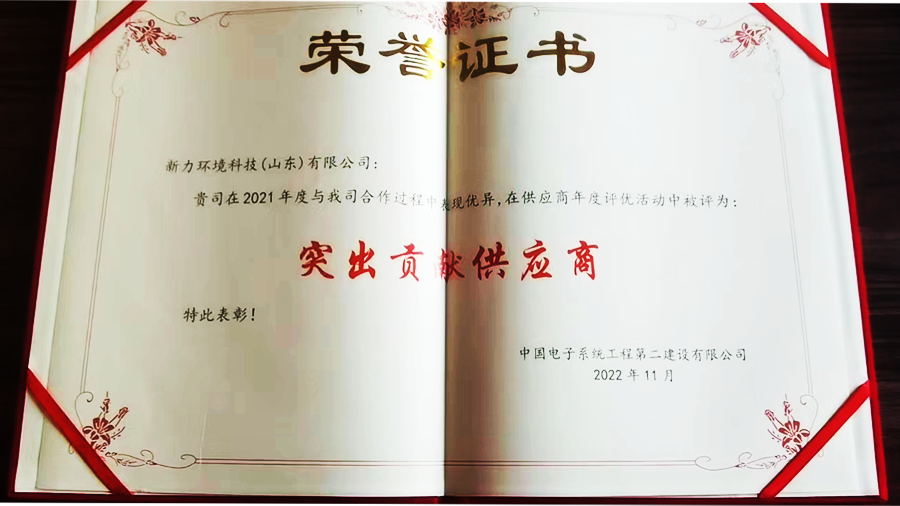 荣誉证书
新力环境科技(山东)有限公司:
贵司在2021年度与我司合作过程中表现优异,在供应商年度评优活动中被评为:
突出贡献供应商
特此表彰!
中国电子系统工程第二建设有限公司
2022年11月